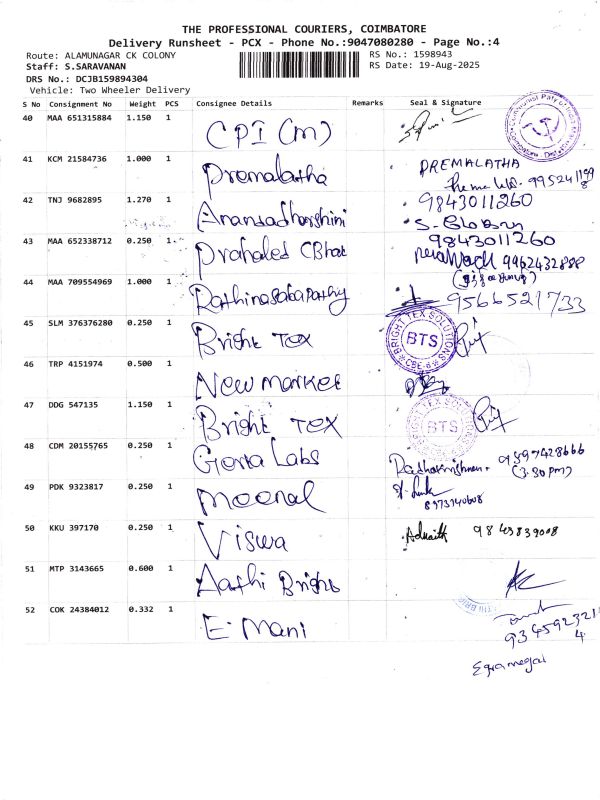 THE PROFESSIONAL COURIERS, COIMBATORE
Delivery Runsheet - PCX - Phone No.:9047080280 - Page No.:4
Route: ALAMUNAGAR CK COLONY
RS No.: 1598943
Staff: S.SARAVANAN
RS Date: 19-Aug-2025
DRS No.: DCJB159894304
Vehicle: Two Wheeler Delivery
S No Consignment No Weight PCS Consignee Details Remarks Seal & Signature
40 MAA 651315884 1.150 1 CPI (m)
41 KCM 21584736 1.000 1 Premalatha PREMALATHA
42 TNJ 9682895 1.270 1 9843011260
43 MAA 652338712 0.250 1 9843011260
9962432888
44 MAA 709554969 1.000 1 Rathinasabapathy 9566521733
45 SLM 376376280 0.250 1 Bright Tex BRIGHT TEX SOLUTIONS BTS CBE-6
46 TRP 4151974 0.500 1 New market
47 DDG 547135 1.150 1 Bright Tex BRIGHT TEX BTS
48 CDM 20155765 0.250 1 Labs
(3.30 pm)
49 PDK 9323817 0.250 1
50 KKU 397170 0.250 1 Viswa 9843839008
51 MTP 3143665 0.600 1
52 COK 24384012 0.332 1 E. Mani